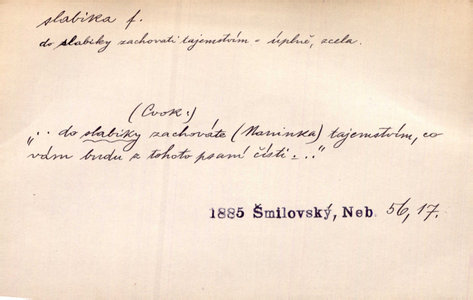 slabika f.
do slabiky zachovati tajemstvím - úplně, zcela.
(Cvok:)
".. do slabiky zachováte (Naninka) tajemstvím, co
vám budu z tohoto psaní čísti - .."
1885 Šmilovský, Neb. 56, 17.